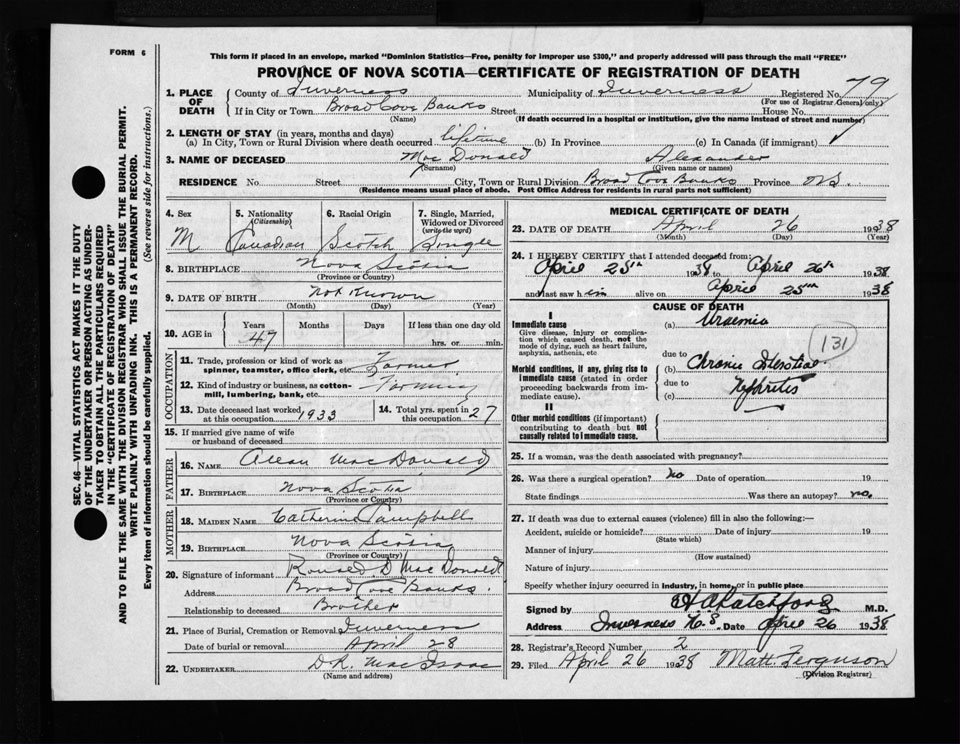 FORM 6
This form if placed in an envelope, marked "Dominion Statistics—Free, penalty for improper use $300," and properly addressed will pass through the mail "FREE"
PROVINCE OF NOVA SCOTIA—CERTIFICATE OF REGISTRATION OF DEATH
1. PLACE OF DEATH
County of Inverness Municipality of Inverness Registered No. 79
(For use of Registrar General only)
If in City or Town Broad Cove Banks Street House No.
(Name) (If death occurred in a hospital or institution, give the name instead of street and number)
2. LENGTH OF STAY (in years, months and days)
(a) In City, Town or Rural Division where death occurred lifetime (b) In Province (c) In Canada (if immigrant)
3. NAME OF DECEASED MacDonald Alexander
(Surname) (Given name or names)
RESIDENCE No. Street City, Town or Rural Division Broad Cove Banks Province N.S.
(Residence means usual place of abode. Post Office Address for residents in rural parts not sufficient)
4. Sex M
5. Nationality (Citizenship) Canadian
6. Racial Origin Scotch
7. Single, Married, Widowed or Divorced (write the word) Single
8. BIRTHPLACE Nova Scotia
(Province or Country)
9. DATE OF BIRTH Not Known
(Month) (Day) (Year)
10. AGE in Years Months Days If less than one day old
47 hrs. or min.
OCCUPATION
11. Trade, profession or kind of work as spinner, teamster, office clerk, etc. Farmer
12. Kind of industry or business, as cotton-mill, lumbering, bank, etc. Farming
13. Date deceased last worked at this occupation 1933
14. Total yrs. spent in this occupation 27
15. If married give name of wife or husband of deceased
FATHER
16. NAME Allan MacDonald
17. BIRTHPLACE Nova Scotia
(Province or Country)
MOTHER
18. MAIDEN NAME Catherine Campbell
19. BIRTHPLACE Nova Scotia
(Province or Country)
20. Signature of informant Ronald D MacDonald
Address Broad Cove Banks
Relationship to deceased Brother
21. Place of Burial, Cremation or Removal Inverness
Date of burial or removal April 28
22. UNDERTAKER D.R. MacIsaac
(Name and address)
MEDICAL CERTIFICATE OF DEATH
23. DATE OF DEATH April 26 1938
(Month) (Day) (Year)
24. I HEREBY CERTIFY that I attended deceased from:
April 25th 1938 to April 26th 1938
and last saw him alive on April 25th 1938
CAUSE OF DEATH
I
Immediate cause
Give disease, injury or complication which caused death, not the mode of dying, such as heart failure, asphyxia, asthenia, etc
(a) Uraemia
131
due to
Morbid conditions, if any, giving rise to immediate cause (stated in order proceeding backwards from immediate cause)
(b) Chronic Interstitial
due to
(c) Nephritis
II
Other morbid conditions (if important) contributing to death but not causally related to immediate cause.
25. If a woman, was the death associated with pregnancy?
26. Was there a surgical operation? No Date of operation 19
State findings Was there an autopsy? no.
27. If death was due to external causes (violence) fill in also the following:—
Accident, suicide or homicide? Date of injury 19
(State which)
Manner of injury
(How sustained)
Nature of injury
Specify whether injury occurred in industry, in home, or in public place
Signed by M.D.
Address Inverness N.S. Date April 26 1938
28. Registrar's Record Number 2
29. Filed April 26 1938 Matt Ferguson
(Division Registrar)
SEC. 46—VITAL STATISTICS ACT MAKES IT THE DUTY
OF THE UNDERTAKER OR PERSON ACTING AS UNDER-
TAKER TO OBTAIN ALL THE PARTICULARS REQUIRED
IN THE "CERTIFICATE OF REGISTRATION OF DEATH"
AND TO FILE THE SAME WITH THE DIVISION REGISTRAR WHO SHALL ISSUE THE BURIAL PERMIT.
WRITE PLAINLY WITH UNFADING INK. THIS IS A PERMANENT RECORD.
Every item of information should be carefully supplied. (See reverse side for instructions.)